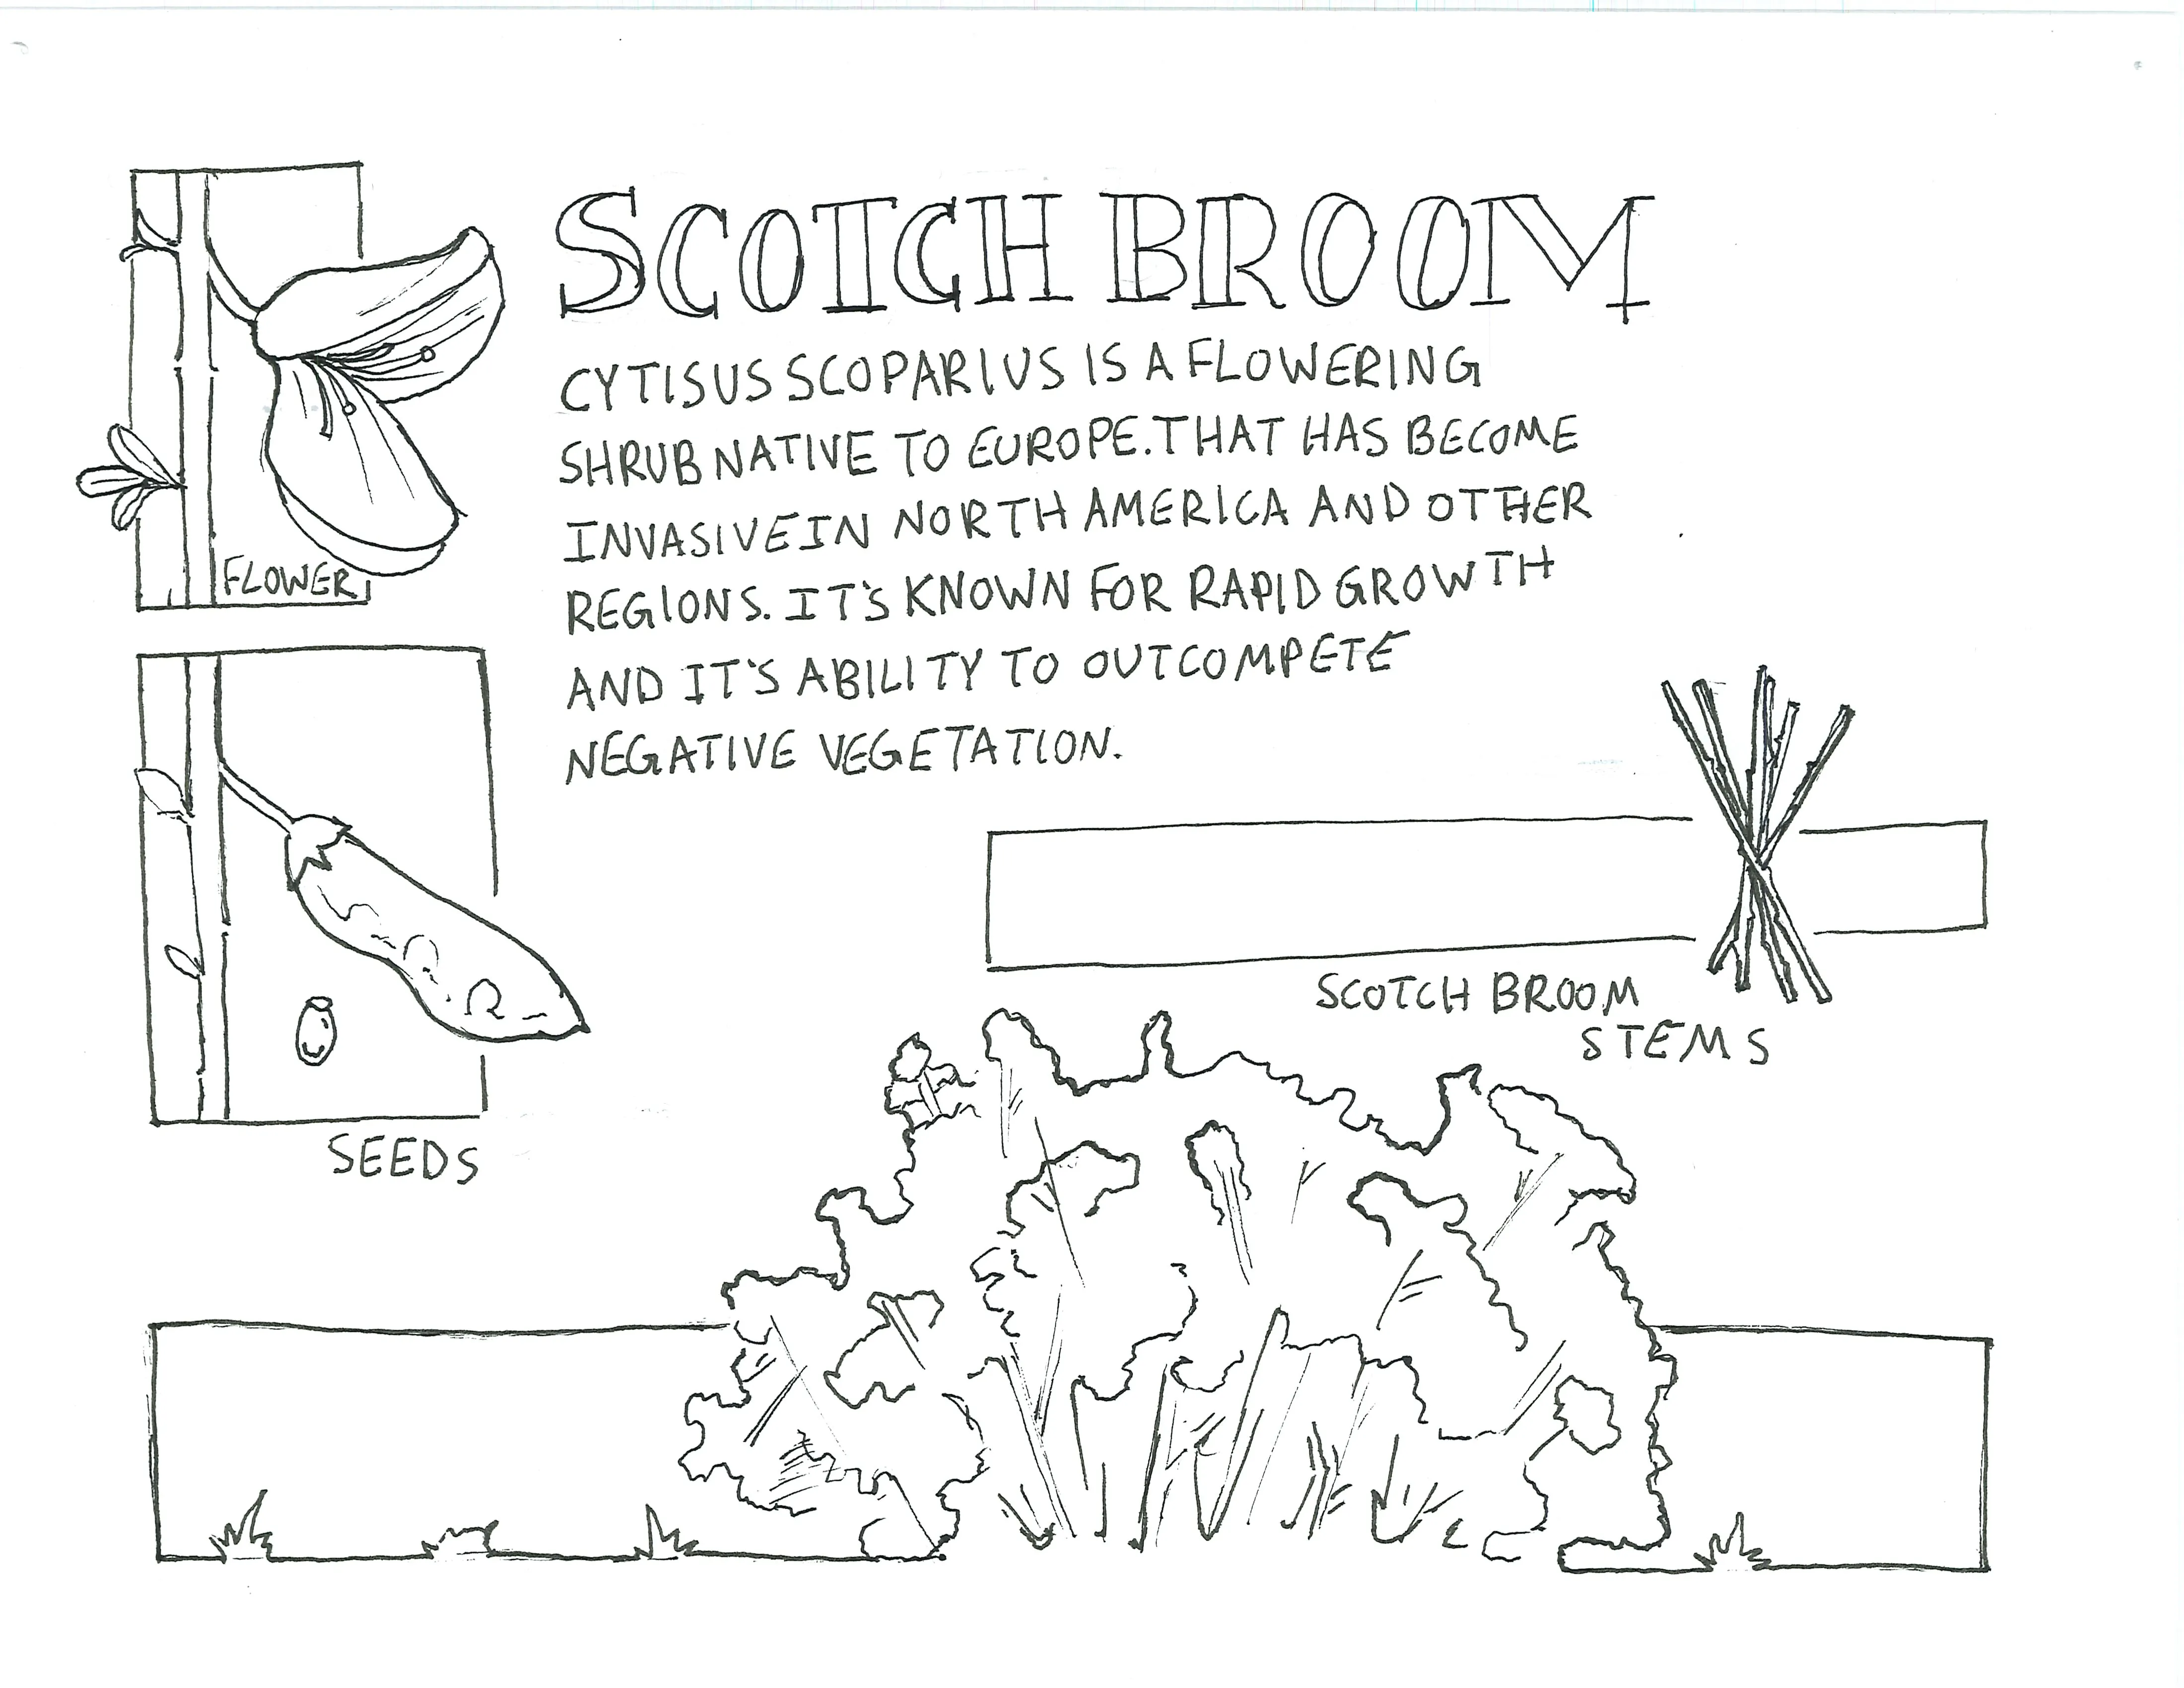 SCOTCH BROOM
CYTISUS SCOPARIUS IS A FLOWERING
SHRUB NATIVE TO EUROPE. THAT HAS BECOME
INVASIVE IN NORTH AMERICA AND OTHER
REGIONS. IT'S KNOWN FOR RAPID GROWTH
AND IT'S ABILITY TO OUTCOMPETE
NEGATIVE VEGETATION.
FLOWER
SEEDS
SCOTCH BROOM
STEMS